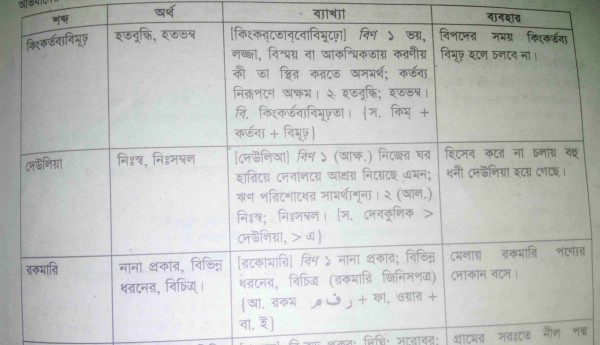 শব্দ অর্থ ব্যাখ্যা ব্যবহার
কিংকর্তব্যবিমূঢ়
হতবুদ্ধি, হতভম্ব
[কিংকর্‌তোব্‌বোবিমুঢ়ো] বিণ ১ ভয়,
লজ্জা, বিস্ময় বা আকস্মিকতায় করণীয়
কী তা স্থির করতে অসমর্থ; কর্তব্য
নিরূপণে অক্ষম। ২ হতবুদ্ধি; হতভম্ব।
বি. কিংকর্তব্যবিমূঢ়তা। {স. কিম্ +
কর্তব্য + বিমূঢ়}
বিপদের সময় কিংকর্তব্য
বিমূঢ় হলে চলবে না।
দেউলিয়া
নিঃস্ব, নিঃসম্বল
[দেউলিআ] বিণ ১ (আক্ষ.) নিজের ঘর
হারিয়ে দেবালয়ে আশ্রয় নিয়েছে এমন;
ঋণ পরিশোধের সামর্থ্যশূন্য। ২ (আল.)
নিঃস্ব; নিঃসম্বল। {স. দেবকুলিক >
দেউলিয়া, > এ}
হিসেব করে না চলায় বহু
ধনী দেউলিয়া হয়ে গেছে।
রকমারি
নানা প্রকার, বিভিন্ন
ধরনের, বিচিত্র।
[রকোমারি] বিণ ১ নানা প্রকার; বিভিন্ন
ধরনের, বিচিত্র (রকমারি জিনিসপত্র)
{আ. রকম رقم + ফা. ওয়ার +
বা. ই}
মেলায় রকমারি পণ্যের
দোকান বসে।
গ্রামের নীল পদ্ম